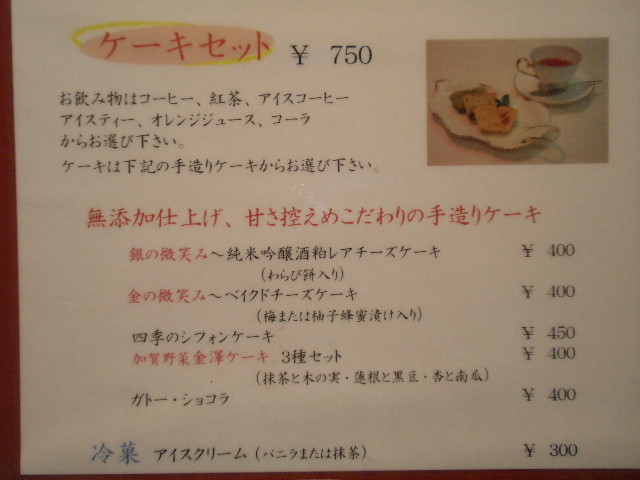 ケーキセット ¥ 750
お飲み物はコーヒー、紅茶、アイスコーヒー
アイスティー、オレンジジュース、コーラ
からお選び下さい。
ケーキは下記の手造りケーキからお選び下さい。
無添加仕上げ、甘さ控えめこだわりの手造りケーキ
銀の微笑み～純米吟醸酒粕レアチーズケーキ ¥ 400
(わらび餅入り)
金の微笑み～ベイクドチーズケーキ ¥ 400
(梅または柚子蜂蜜漬け入り)
四季のシフォンケーキ ¥ 450
加賀野菜金澤ケーキ 3種セット ¥ 400
(抹茶と木の実・蓮根と黒豆・杏と南瓜)
ガトー・ショコラ ¥ 400
冷菓 アイスクリーム (バニラまたは抹茶) ¥ 300